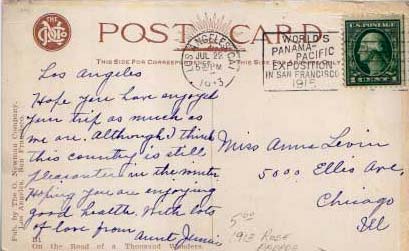 THE
POST CARD
THIS SIDE FOR CORRESPONDENCE
ONLY.
LOS ANGELES, CAL.
JUL 22
5 30 PM
1913
WORLD'S
PANAMA-
PACIFIC
EXPOSITION
IN SAN FRANCISCO
1915
U.S. POSTAGE
1 CENT 1
Los Angeles
Hope you have enjoyed
your trip as much as
me are. Although I think
this country is still
pleasanter in the winter.
Hoping you are enjoying
good health. With lots
of love from Aunt Jennie
Miss Anna Levin
5000 Ellis Ave,
Chicago
Ill
Pub. by The O. Newman Company,
Los Angeles. San Francisco.
B1
On the Road of a Thousand Wonders
5.00
1913 ROSE